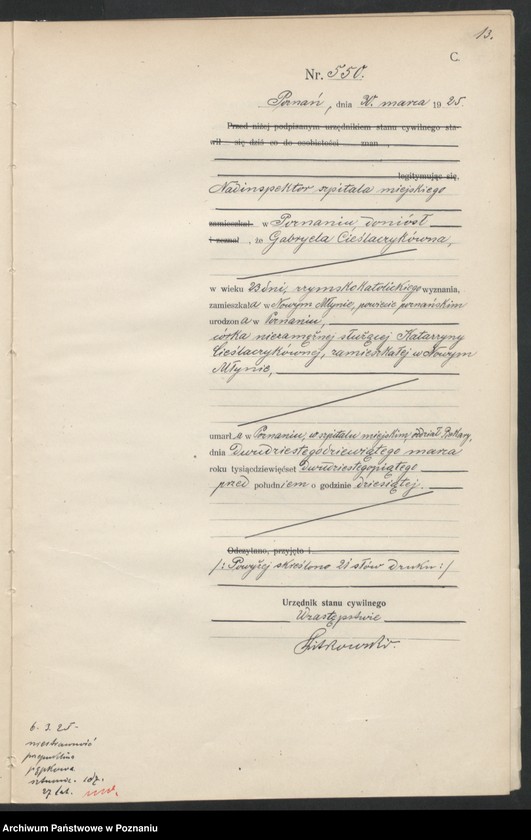 13.
C.
Nr. 550.
Poznań, dnia 30. marca 1925.
Przed niżej podpisanym urzędnikiem stanu cywilnego sta-
wił się dziś co do osobistości znan
legitymując się,
Nadinspektor szpitala miejskiego
zamieszkał w Poznaniu, doniósł
i zeznał, że Gabryela Cieślaczykówna,
w wieku 23 dni, rzymskokatolickiego wyznania,
zamieszkała w Nowym Młynie, powiecie poznańskim
urodzona w Poznaniu,
córka niezamężnej służącej Katarzyny
Cieślaczykównej, zamieszkałej w Nowym
Młynie,
umarła w Poznaniu, w szpitalu miejskim, oddział
dnia dwudziestego dziewiątego marca
roku tysiącdziewięćset dwudziestegopiątego
przed południem o godzinie dziesiątej.
Odczytano, przyjęto i
/: Powyżej skreślono 21 słów druku :/
Urzędnik stanu cywilnego
W zastępstwie
6. 3. 25 -
27 lat.
Archiwum Państwowe w Poznaniu